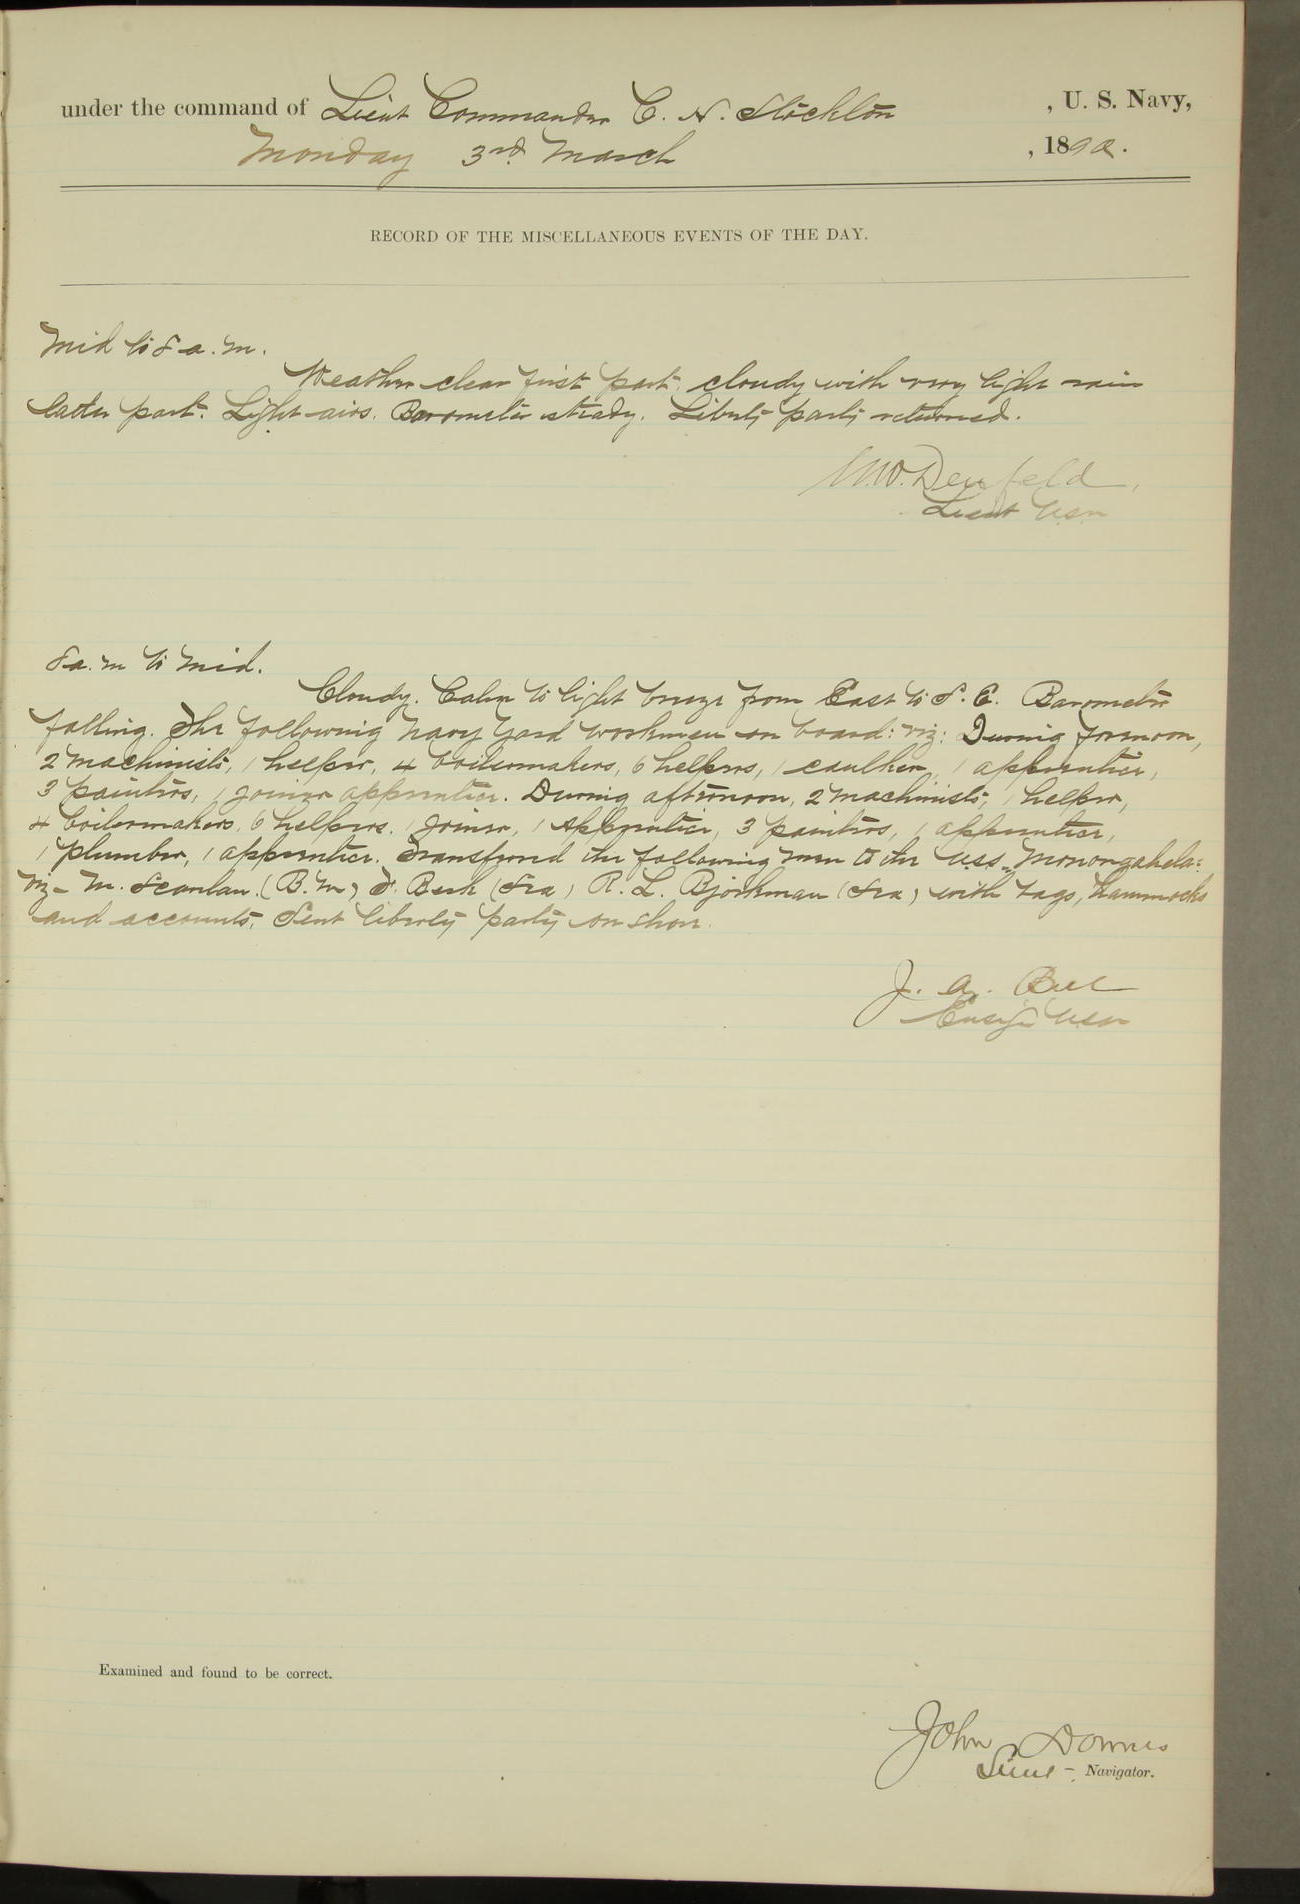 under the command of Lieut Commander C. H. Stockton, U. S. Navy,
Monday 3rd. March, 1890.
RECORD OF THE MISCELLANEOUS EVENTS OF THE DAY.
Mid to 8 a.m.
Weather clear first part, cloudy with very light rain
latter part. Light airs. Barometer steady. Liberty party returned.
Denfeld,
Lieut USN
8 a.m to Mid.
Cloudy. Calm to light breeze from East to S. E. Barometer
falling. The following Navy Yard workmen on board: viz: During forenoon,
2 machinists, 1 helper, 4 boilermakers, 6 helpers, 1 caulker, 1 apprentice,
3 painters, 1 joiner apprentice. During afternoon, 2 machinists, 1 helper,
4 boilermakers, 6 helpers. 1 joiner, 1 apprentice, 3 painters, 1 apprentice,
1 plumber, 1 apprentice. Transferred the following men to the U.S.S. Monongahela:
viz- M. Scanlan (B.M) (Sea) R. L. Bjorkman (Sea) with bags, hammocks
and accounts. Sent liberty party on shore.
J. A. Bell
Ensign USN
Examined and found to be correct.
John Downes
Lieut-, Navigator.